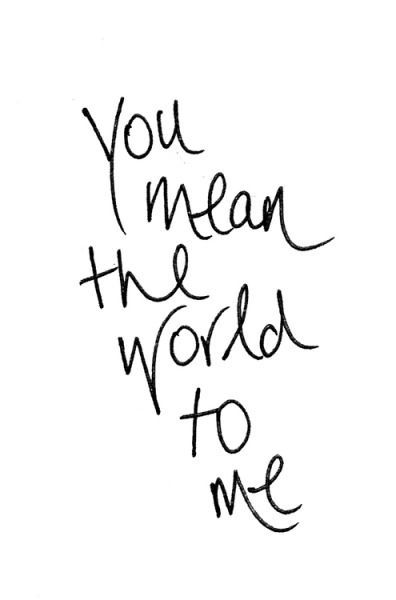 You
mean
the
world
to
me